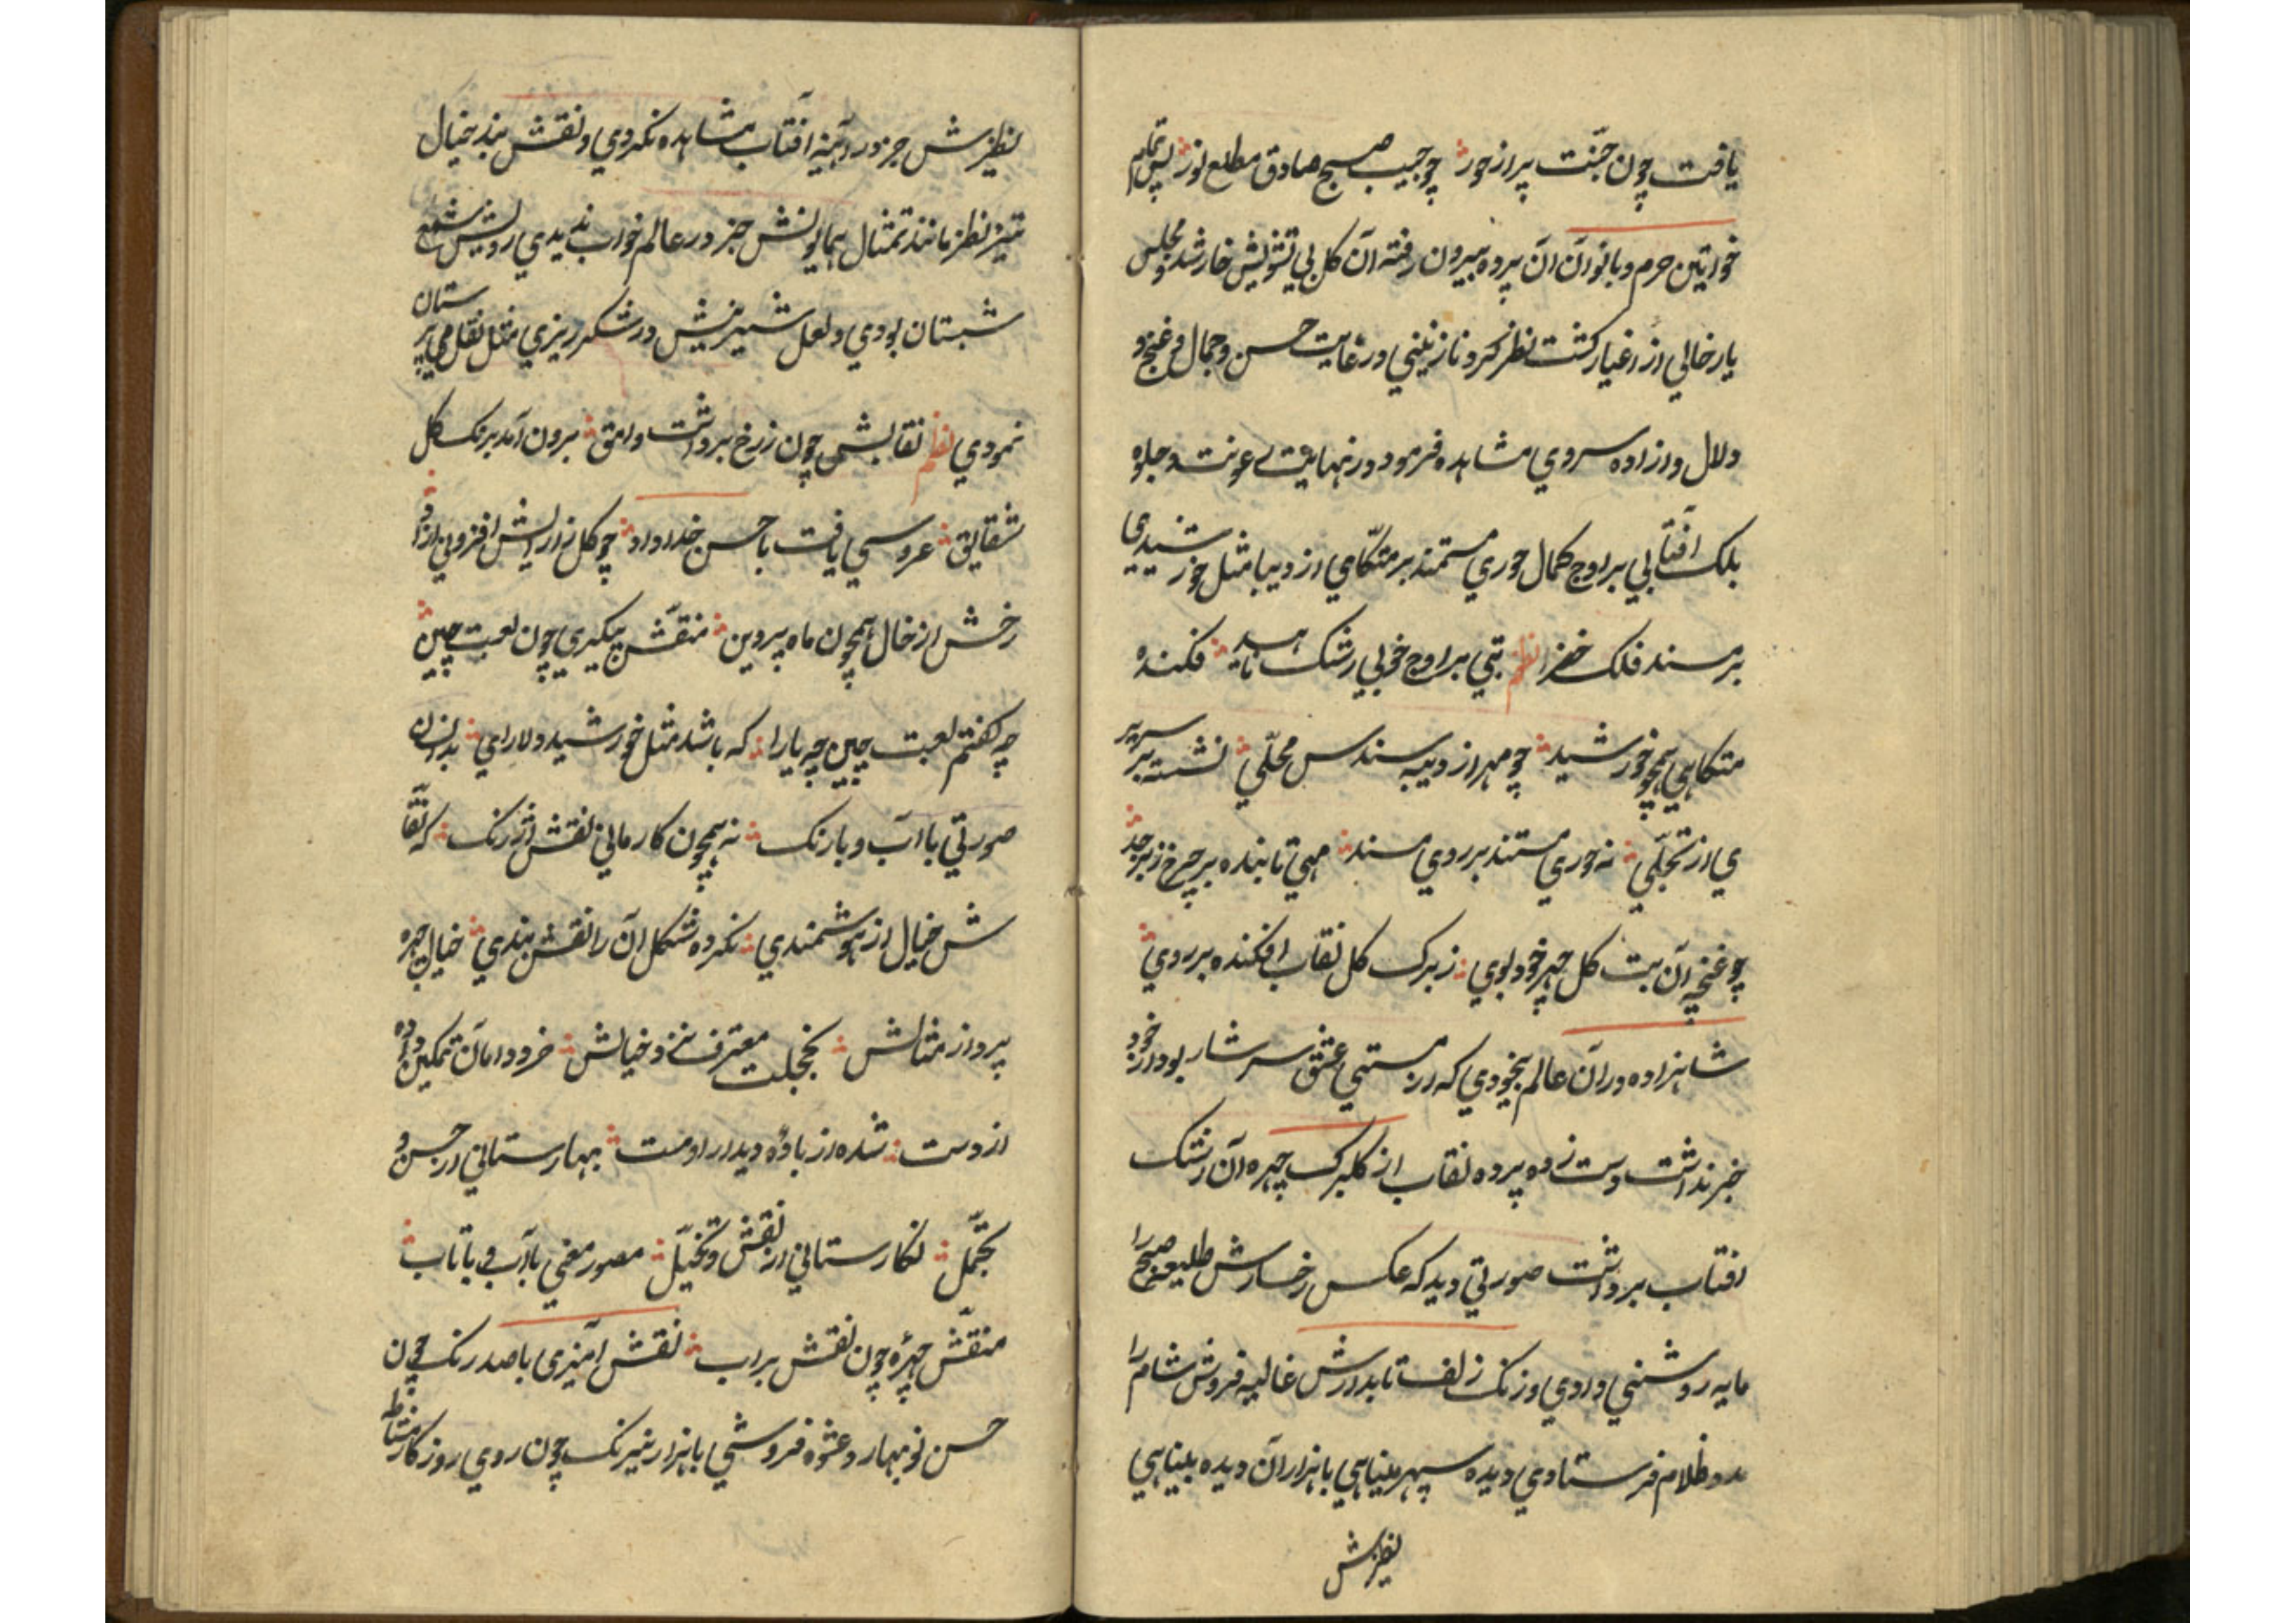 یافت چون جنّت پر از حور چو جیب صبح صادق مطلع نور پس تمام
خواتین حرم و بانوان آن پرده بیرون رفته آن کل بی تشویش خار شد و مجلس
یار خالی از اغیار کشت نظر کرد نازنینی در غایت حسن و جمال و غنج و
دلال و ازاده سروی مشاهده فرمود در نهایت رعونت و جلوه
بلک آفتابی بر اوج کمال حوری مستمند بر متکّامی از دیبا مثل خورشیدی
بر مسند فلک خضرا نظم بتی بر اوج خوبی رشک ناهید فکنده
متکاهی همچو خورشید چو مهر از دیبه سندس محلّی نشسته بر سریر
ی از تجلّی نه حوری مستند بر روی مسند مهی تابنده بر چرخ زبرجد
چو غنچه آن بت کل چهر خود بوی ز برک کل نقاب افکنده بر روی
شاهزاده در آن عالم بیخودی که از مستی عشق سرشار بود از خود
خبر نداشت دست زده پرده نقاب از کلبرک چهره آن رشک
افتاب برداشت صورتی دید که عکس رخسارش طلیعه صبح را
مایه روشنی دادی و زنک زلف تابدارش غالیه فروش شام را
مدد ظلام فرستادی دیده سپهر مینایی با هزاران دیده بینایی
نظیرش
نظیرش جز در آینه آفتاب مشاهده نکردی و نقش بند خیال
تیز نظر مانند تمثال همایونش جز در عالم خواب ندیدی رویش شمع
شبستان بودی و لعل شیرینش در شکرریزی مثل نقل می پرستان
نمودی نظم نقابش چون ز رخ برداشت وامق برون آمد برنک کل
شقایق عروسی یافت با حسن خداداد چو کل ز ارایش افزونی ازاد
رخش از خال همچون ماه پروین منقّش پیکری چون لعبت چین
چه کفتم لعبت چین چه یارا که باشد مثل خورشید دلارای بدانسان
صورتی با آب و با رنک نه همچون کار مانی نقش ارژنک که نقّا
ش خیال از هوشمندی نکرده شکل آن را نقش بندی خیال چهره
پرداز مثالش بخجلت معترف نزد خیالش خرد دامان تمکین داده
از دست شده از باده دیدار او مست بهارستانی از حسن و
تجمّل نکارستانی از نقش و تخیّل مصور معنی با آب و با تاب
منقّش چهره چون نقش بر اب نقش آمیزی با صد رنک چون
حسن نوبهار و عشوه فروشی با هزار نیرنک چون روی روزکار مشاطه